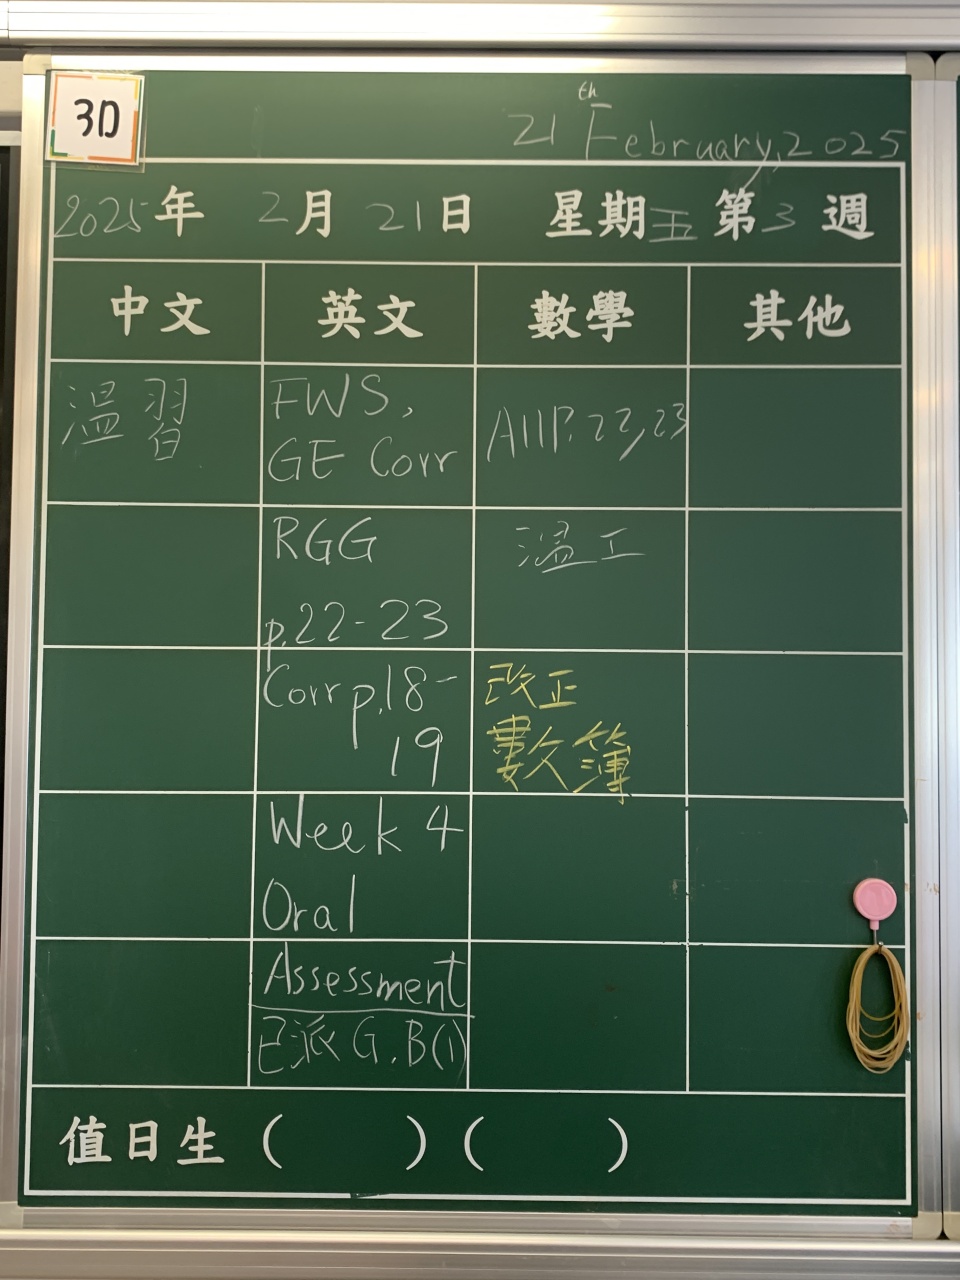 3D
21th February, 2025
2025年 2月 21日 星期五 第3週
中文 英文 數學 其他
溫習
FWS,
GE Corr
A11 P.22,23
RGG
p.22-23
溫工
Corr p.18-
19
改正
數簿
Week 4
Oral
Assessment
已派 G.B(1)
值日生 ( ) ( )